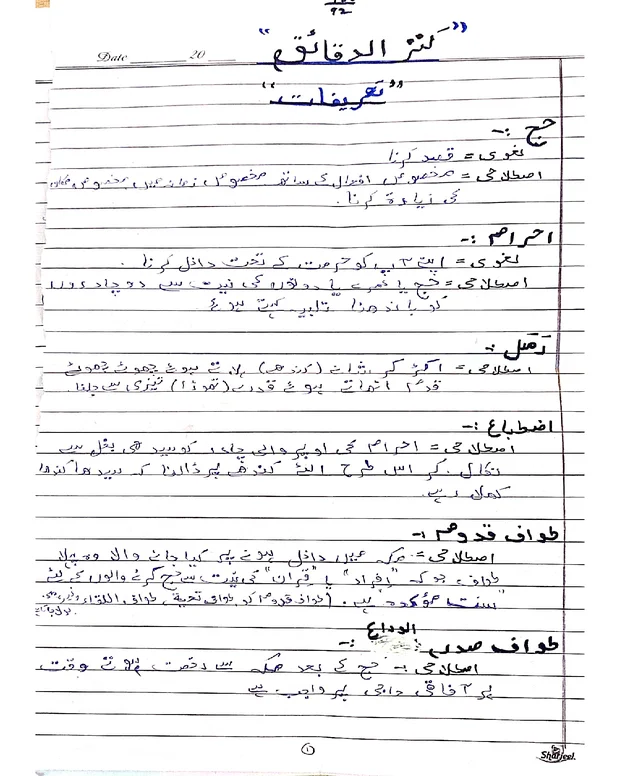 92
Date 20
"کنز الدقائق"
"تعریفات"
حج :-
لغوی = قصد کرنا
اصطلاحی = مخصوص افعال کے ساتھ مخصوص زمانہ میں مخصوص مکان
کی زیارۃ کرنا ۔
احرام :-
لغوی = اپنے آپ کو حرمت کے تحت داخل کرنا ۔
اصطلاحی = حج یا عمرے یا دونوں کی نیت سے دو چادروں
کو باندھنا تلبیہ کہتے ہوئے
رمل :-
اصطلاحی = اکڑ کر شانے (کندھے) ہلاتے ہوئے چھوٹے چھوٹے
قدم اٹھاتے ہوئے قدرے (تھوڑا) تیزی سے چلنا۔
اضطباع :-
اصطلاحی = احرام کی اوپر والی چادر کو سیدھی بغل سے
نکال کر اس طرح الٹے کندھے پر ڈالنا کہ سیدھا کندھا
کھلا رہے۔
طواف قدوم :-
اصطلاحی = مکہ میں داخل ہونے پر کیا جانے والا وہ پہلا
طواف جو کہ "افراد" یا "قران" کی نیت سے حج کرنے والوں کے لئے
"سنت مؤکدہ" ہے۔ (طواف قدوم کو طواف تحیۃ، طواف اللقاء
طواف صدر الوداع :-
اصطلاحی :- حج کے بعد مکہ سے رخصت ہوتے وقت
ہر آفاقی حاجی پر واجب ہے
1
Sharjeel